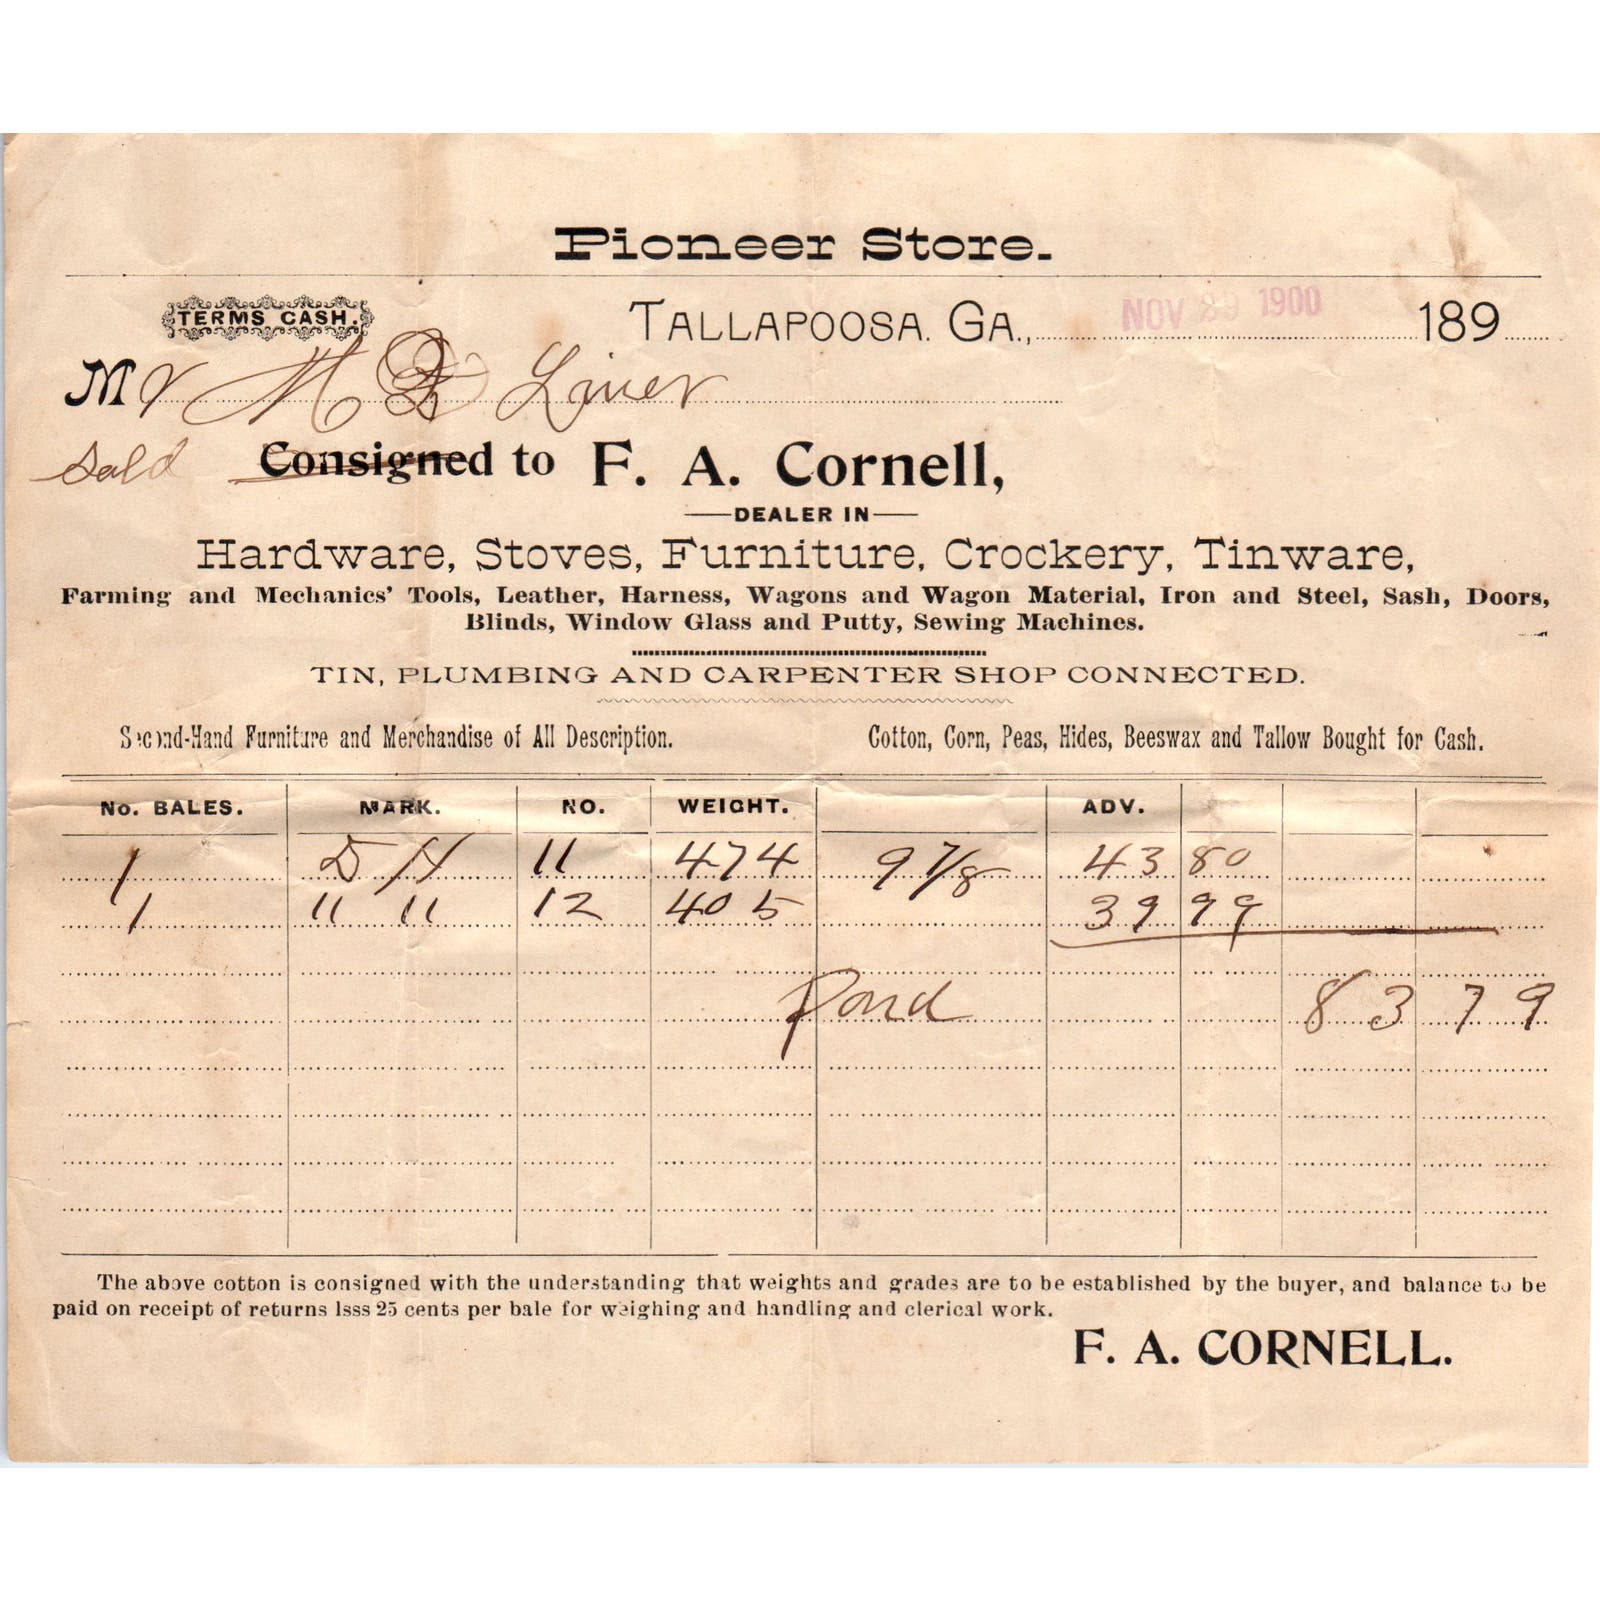 Pioneer Store.
TERMS CASH.
TALLAPOOSA. GA., NOV 1900 189
Mr H Liner
Sold Consigned to F. A. Cornell,
DEALER IN
Hardware, Stoves, Furniture, Crockery, Tinware,
Farming and Mechanics' Tools, Leather, Harness, Wagons and Wagon Material, Iron and Steel, Sash, Doors,
Blinds, Window Glass and Putty, Sewing Machines.
TIN, PLUMBING AND CARPENTER SHOP CONNECTED.
Second-Hand Furniture and Merchandise of All Description. Cotton, Corn, Peas, Hides, Beeswax and Tallow Bought for Cash.
No. BALES. MARK. NO. WEIGHT. ADV.
1 D H 11 474 9 7/8 43 80
1 " " 12 405 39 99
83 79
The above cotton is consigned with the understanding that weights and grades are to be established by the buyer, and balance to be
paid on receipt of returns lsss 25 cents per bale for weighing and handling and clerical work.
F. A. CORNELL.